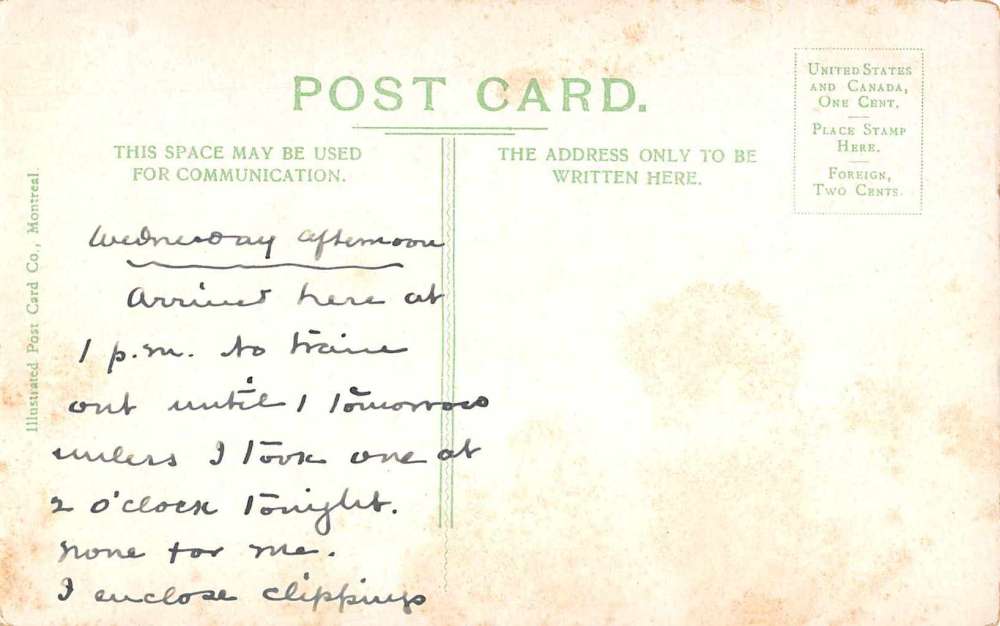 POST CARD.
THIS SPACE MAY BE USED
FOR COMMUNICATION.
THE ADDRESS ONLY TO BE
WRITTEN HERE.
UNITED STATES
AND CANADA,
ONE CENT.
PLACE STAMP
HERE.
FOREIGN,
TWO CENTS.
Illustrated Post Card Co., Montreal.
Wednesday afternoon
Arrived here at
1 p.m. No train
out until 1 tomorrow
unless I took one at
2 o'clock tonight.
None for me.
I enclose clippings